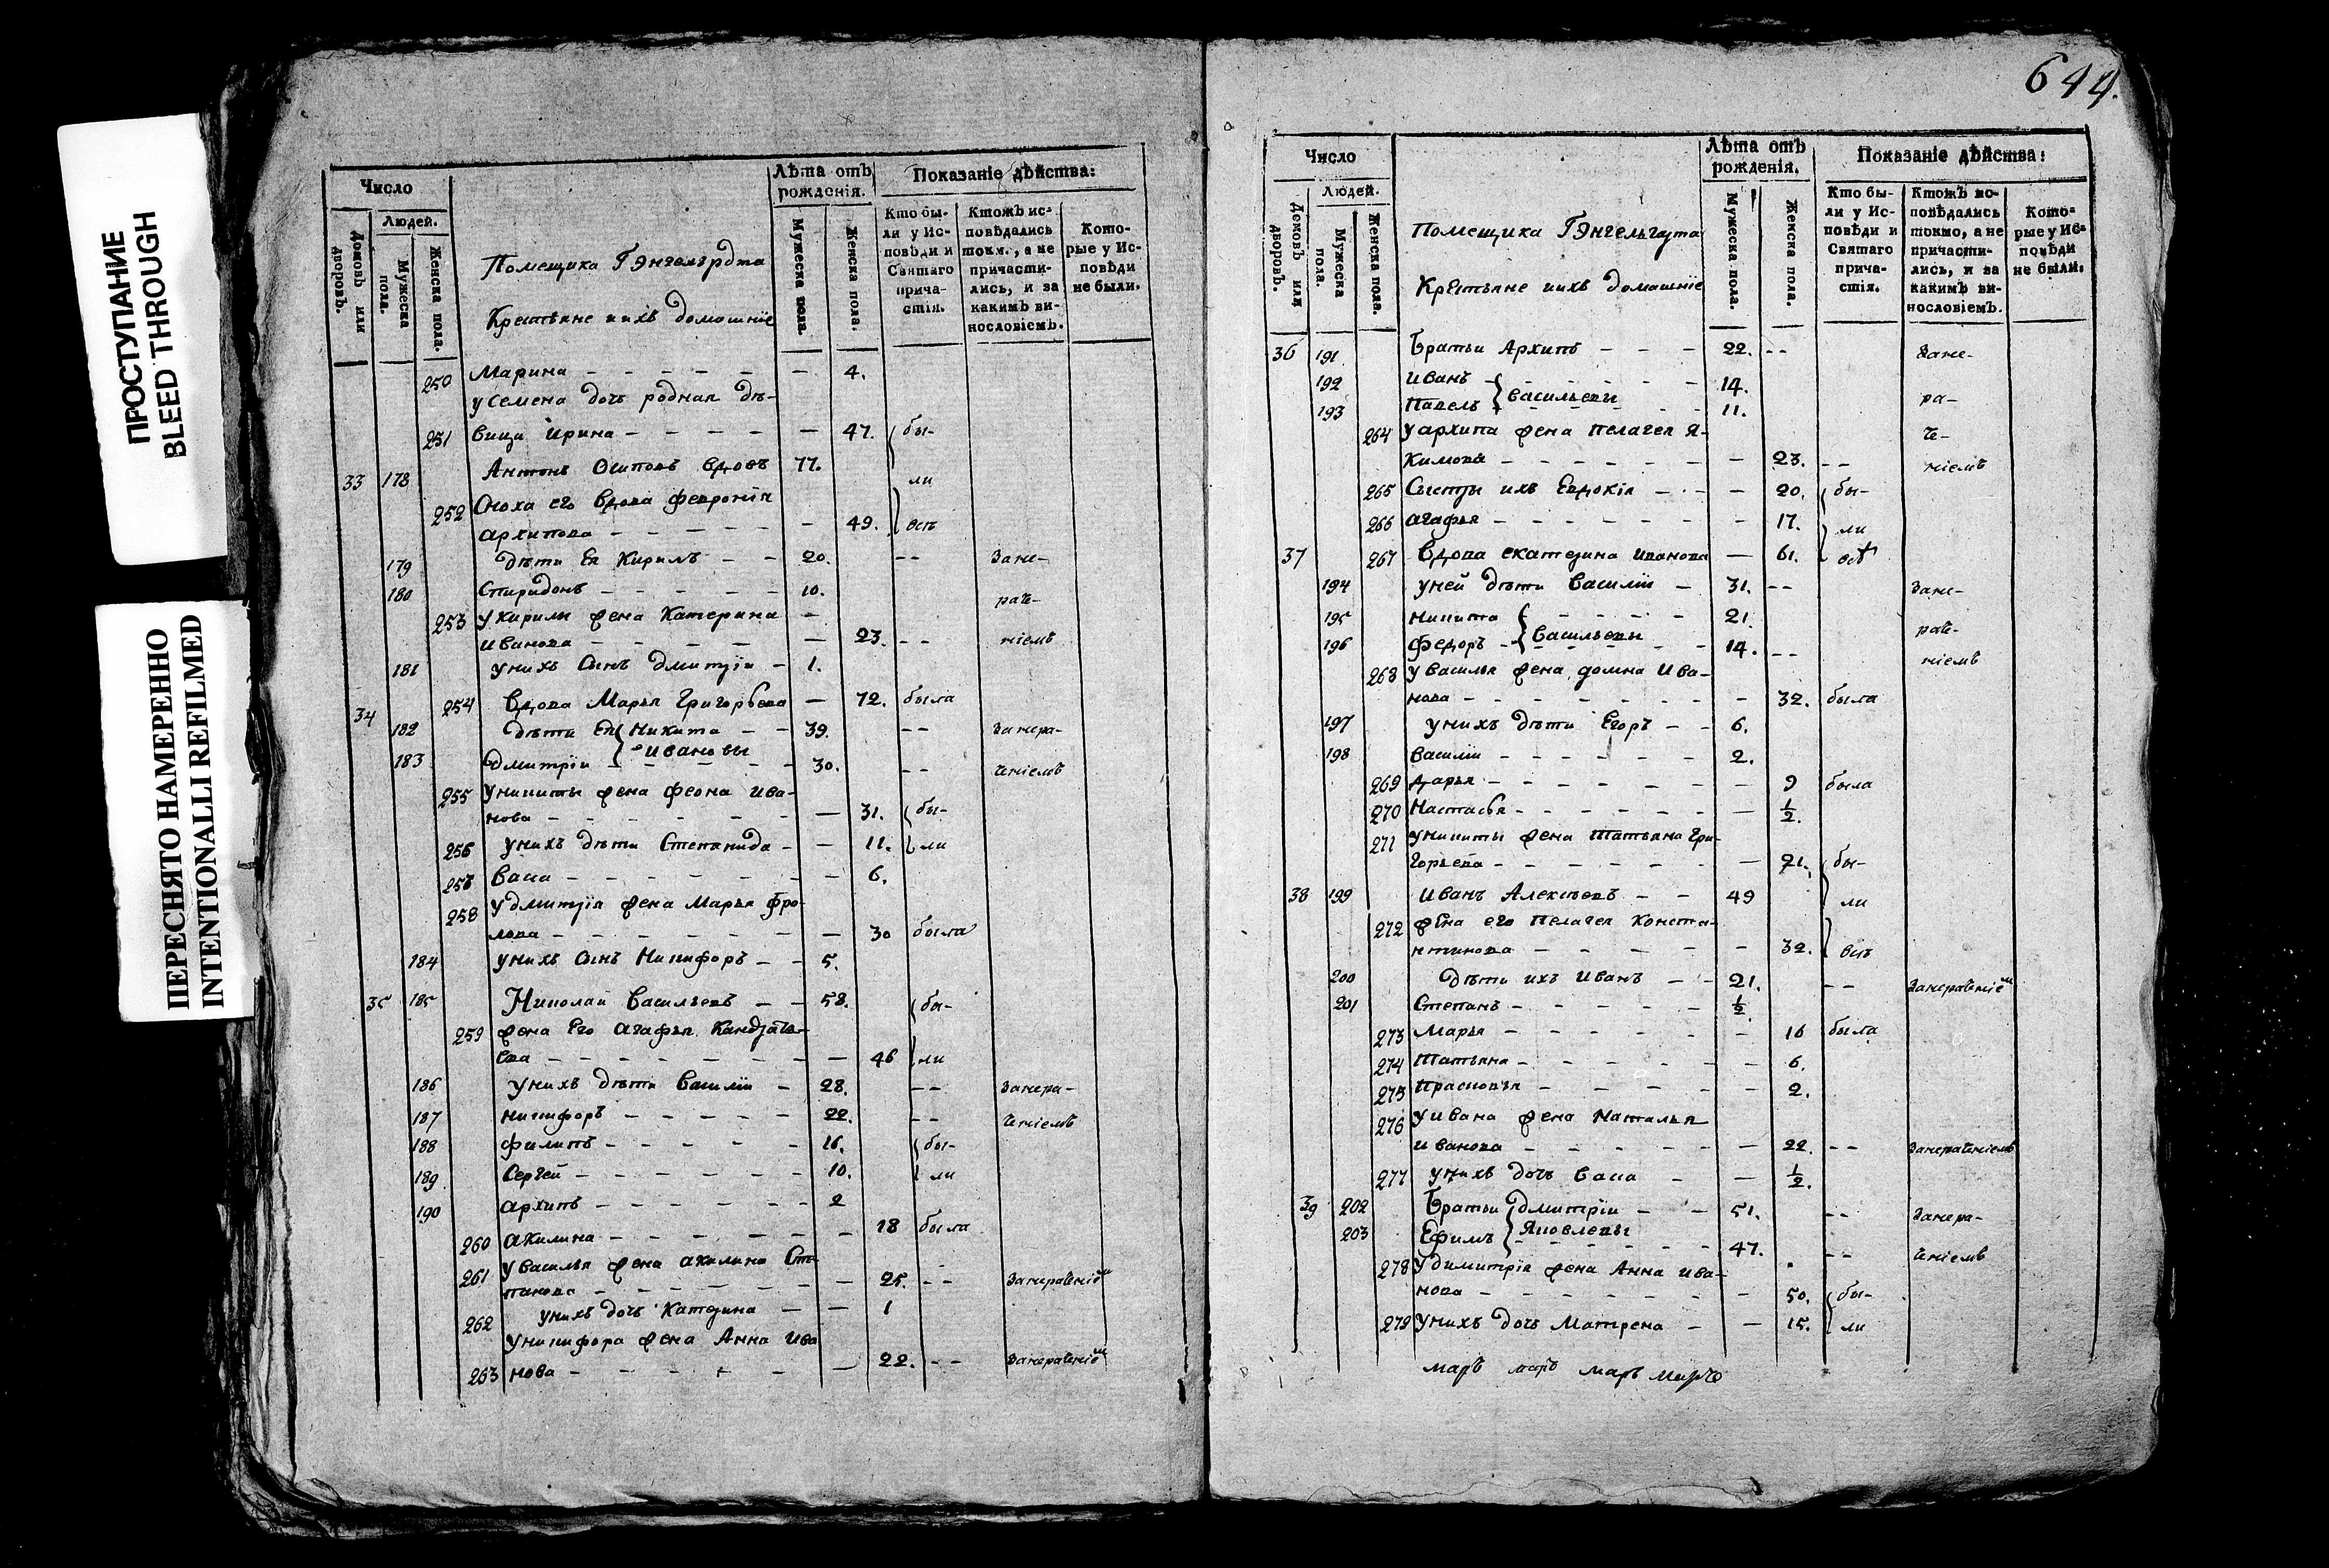 ПРОСТУПАНИЕ
BLEED THROUGH
ПЕРЕСНЯТО НАМЕРЕННО
INTENTIONALLI REFILMED
Число
Людей.
Домовъ или дворовъ.
Мужеска пола.
Женска пола.
Помещика Гэнгельгрдта
Крстьяне иихъ домашніе
Лѣта отъ рожденія.
Мужеска пола.
Женска пола.
Показаніе дѣйства:
Кто бы-
ли у Ис-
повѣди и
Святаго
прича-
стія.
Ктожъ ис-
повѣдались
токм., а не
причасти-
лись, и за
какимъ ви-
нословіемъ.
Кото-
рые у Ис-
повѣди
не были.
250 Марина — 4.
у Семена дочь родная дѣ-
251 вица Ирина — 47. бы-
33 178 Антонъ Осиповъ вдовъ 77. ли
252 Сноха его вдова Феврония
архипова — 49. всѣ
179 дѣти Ея Кирилъ — 20. -- Зане-
180 Спиридонъ — 10. раче-
253 у Кирилы жена Катерина —
иванова — 23. -- ніемъ
181 унихъ сынъ дмитрій — 1.
34 254 вдова Марья Григорьева — 72. была
182 дѣти Ея Никита — 39. -- Занера-
Ивановы
183 дмитріи — 30. -- ченіемъ
255 уникиты жена феона ива-
нова — 31. бы-
256 унихъ дѣти Степанида — 11. ли
257 васа — 6.
258 у дмитрія жена Марья фро-
лова — 30 была
184 унихъ сынъ Никифоръ — 5.
35 185 Николай Васильевъ — 58. бы-
259 жена Его агафья Кандрать-
ева — 46 ли
186 унихъ дѣти василіи — 28. -- Занера-
187 никифоръ — 22. -- ченіемъ
188 филипъ — 16. бы-
189 Сергей — 10. ли
190 архипъ — 2
260 акилина — 18 была
261 у василья жена акилина Сте-
панова — 25. -- Занераченіемъ
262 унихъ дочь Катерина — 1
уникифора жена Анна ива
263 нова — 22. -- Занераченіемъ
644.
Число
Людей.
Домовъ или дворовъ.
Мужеска пола.
Женска пола.
Помещика Гэнгельгарта
Крстьяне иихъ домашніе
Лѣта отъ
рожденія.
Мужеска пола.
Женска пола.
Показаніе дѣйства:
Кто бы-
ли у Ис-
повѣди и
Святаго
прича-
стія.
Ктожъ ис-
повѣдались
токмо, а не
причасти-
лись, и за
какимъ ви-
нословіемъ.
Кото-
рые у Ис-
повѣди
не были.
36 191 Братьи Архипъ — 22. -- Зане-
192 иванъ — 14.
васильевы ра-
193 Павелъ — 11.
264 у архипа жена пелагея Я- че-
кимова — 23. -- ніемъ
265 Сестры ихъ Евдокія — 20. бы-
266 агафья — 17. ли
37 267 вдова екатерина иванова — 61. всѣ
194 уней дѣти василіи — 31. -- Зане-
195 никита — 21. раче-
васильевы
196 федоръ — 14. -- ніемъ
268 у василья жена домна ива-
нова — 32. была
197 унихъ дѣти Егоръ — 6.
198 василіи — 2.
269 дарья — 9 была
270 Настасья — ½.
271 уникиты жена татьяна гри-
горьева — 21. бы-
38 199 иванъ Алексѣевъ — 49 ли
272 жена его пелагея конста-
нтинова — 32. всѣ
200 дѣти ихъ иванъ — 21. -- Занераченіемъ
201 Степанъ — ½
273 марья — 16 была
274 татьяна — 6.
275 прасковья — 2.
276 у ивана жена Наталья
иванова — 22. -- Занераченіемъ
277 унихъ дочь васа — ½.
39 202 Братьи дмитріи — 51. -- Занера-
Яковлевы
203 Ефимъ — 47. -- ченіемъ
278 у димитрія жена Анна ива-
нова — 50. бы-
279 унихъ дочь матрена — 15. ли
маръ маръ маръ